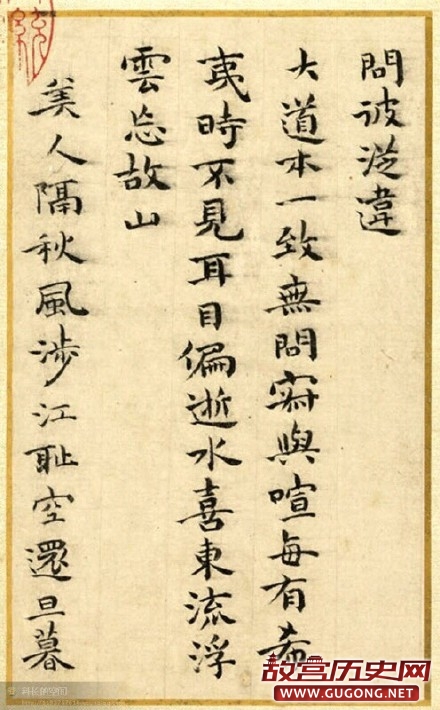 問彼從違
大道本一致無問寂與喧每有希
夷時不見耳目偏逝水喜東流浮
雲忘故山
美人隔秋風涉江耻空還旦暮
故宫历史网
WWW.GUGONG.NET